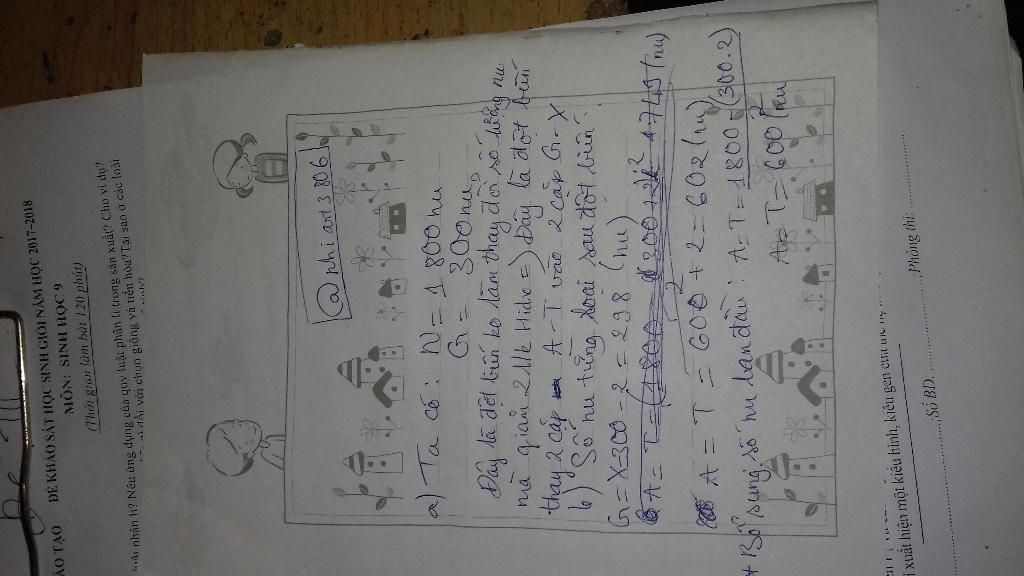 ÀO TẠO ĐỀ KHẢO SÁT HỌC SINH GIỎI NĂM HỌC 2017-2018
MÔN: SINH HỌC 9
(Thời gian làm bài 120 phút)
phân li? Nêu ứng dụng của quy luật phân li trong sản xuất? Cho ví dụ?
đối với chọn giống và tiến hóa? Tại sao ở các loài
@nhi art 3 806
a) Ta có: N = 1 800 nu
G = 300 nu
Đây là đột biến ko làm thay đổi số lượng nu
mà giảm 2 lk Hidro => Đây là đột biến
thay 2 cặp A-T vào 2 cặp G-X
b) Số nu từng loại sau đột biến
G = X = 300 - 2 = 298 (nu)
A = T = 600 + 2 = 602 (nu)
* Bổ sung số nu ban đầu: A = T = 1800 - (300.2)
2
A = T = 600 nu
xuất hiện một kiểu hình, kiểu gen của
Số BD
Phòng thi: